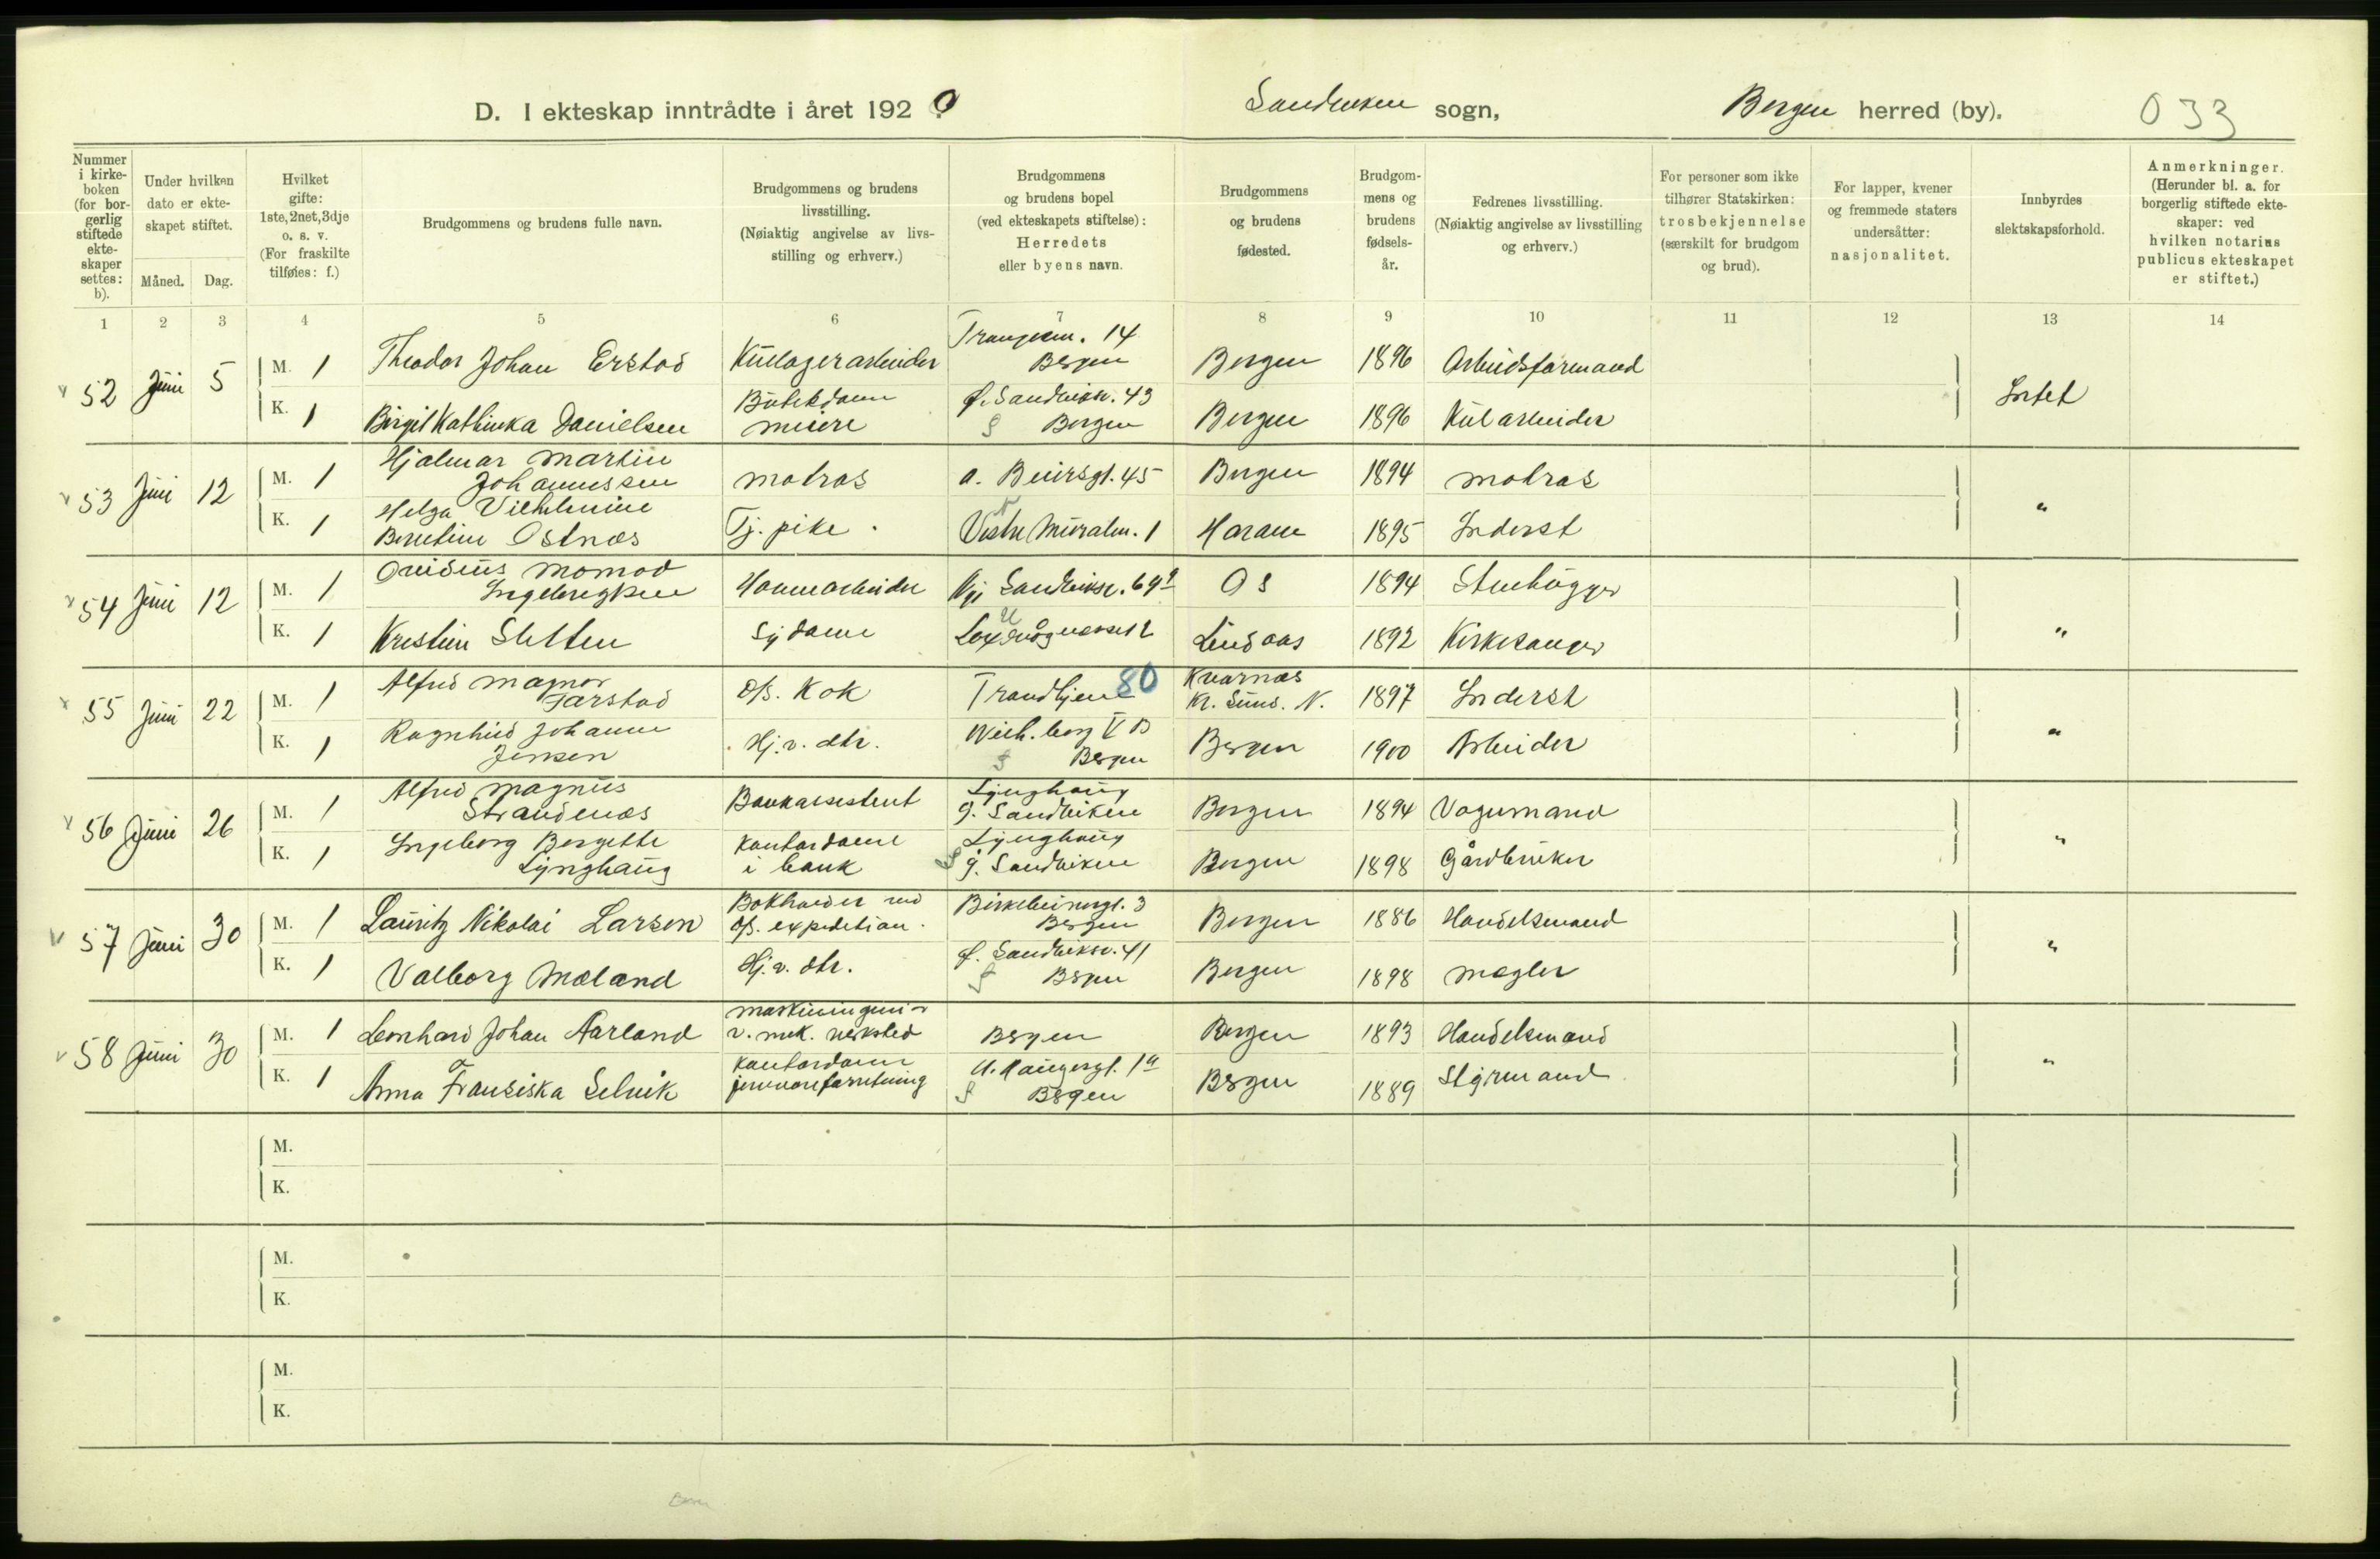 D. I ekteskap inntrådte i året 1920
Sandviken sogn,
Bergen herred (by).
033
Nummer i kirkeboken (for borgerlig stiftede ekteskaper settes: b).
Under hvilken dato er ekteskapet stiftet.
Måned. Dag.
Hvilket gifte: 1ste, 2net, 3dje o. s. v. (For fraskilte tilføies: f.)
Brudgommens og brudens fulle navn.
Brudgommens og brudens livsstilling. (Nøiaktig angivelse av livsstilling og erhverv.)
Brudgommens og brudens bopel (ved ekteskapets stiftelse): Herredets eller byens navn.
Brudgommens og brudens fødested.
Brudgommens og brudens fødselsår.
Fedrenes livsstilling. (Nøiaktig angivelse av livsstilling og erhverv.)
For personer som ikke tilhører Statskirken: trosbekjennelse (særskilt for brudgom og brud).
For lapper, kvener og fremmede staters undersåtter: nasjonalitet.
Innbyrdes slektskapsforhold.
Anmerkninger. (Herunder bl. a. for borgerlig stiftede ekteskaper: ved hvilken notarius publicus ekteskapet er stiftet.)
1 2 3 4 5 6 7 8 9 10 11 12 13 14
52 Juni 5 M. 1 Theodor Johan Erstad Kullagerarbeider 14 Bergen Bergen 1896 Arbeidsformand Intet
K. 1 Birgit Kathinka Danielsen Butikdame Ø. Sandviksv. 43 Bergen Bergen 1896 Kularbeider
53 Juni 12 M. 1 Hjalmar Martin Johannessen matros 45 Bergen 1894 matros "
K. 1 Helga Vilhelmine Berntine Ostnæs Tj. pike Vestre Muralm. 1 Haram 1895 Inderst
54 Juni 12 M. 1 Ovidius Momod Ingebrigtsen Havnearbeider Nye Sandviksv. Os 1894 Stenhugger "
K. 1 Kristine Sletten Sydame Lindaas 1892 Kirkesanger
55 Juni 22 M. 1 Alfred Magnor Farstad D/S. Kok Trondhjem 80 Kvernæs Kr. Sund. N. 1897 Inderst "
K. 1 Ragnhild Johanne Jensen Hj. v. dtr. V B Bergen Bergen 1900 Arbeider
56 Juni 26 M. 1 Alfred Magnus Strandenæs Bankassistent Lynghaug Sandviken Bergen 1894 Vognmand "
K. 1 Ingeborg Bergette Lynghaug Kontordame i bank Lynghaug Sandviken Bergen 1898 Gårdbruker
57 Juni 30 M. 1 Lauritz Nikolai Larsen Bokholder ved D/S. expedition. Birkebeinergt. 3 Bergen Bergen 1886 Handelsmand "
K. 1 Valborg Mæland Hj. v. dtr. Ø. Sandviksv. 41 Bergen Bergen 1898 Mægler
58 Juni 30 M. 1 Leonhard Johan Aarland Maskiningeniør v. mek. verksted Bergen Bergen 1893 Handelsmand "
K. 1 Anna Fransiska Selvik Kontordame jernvareforretning Bergen Bergen 1889 Styrmand
M.
K.
M.
K.
M.
K.